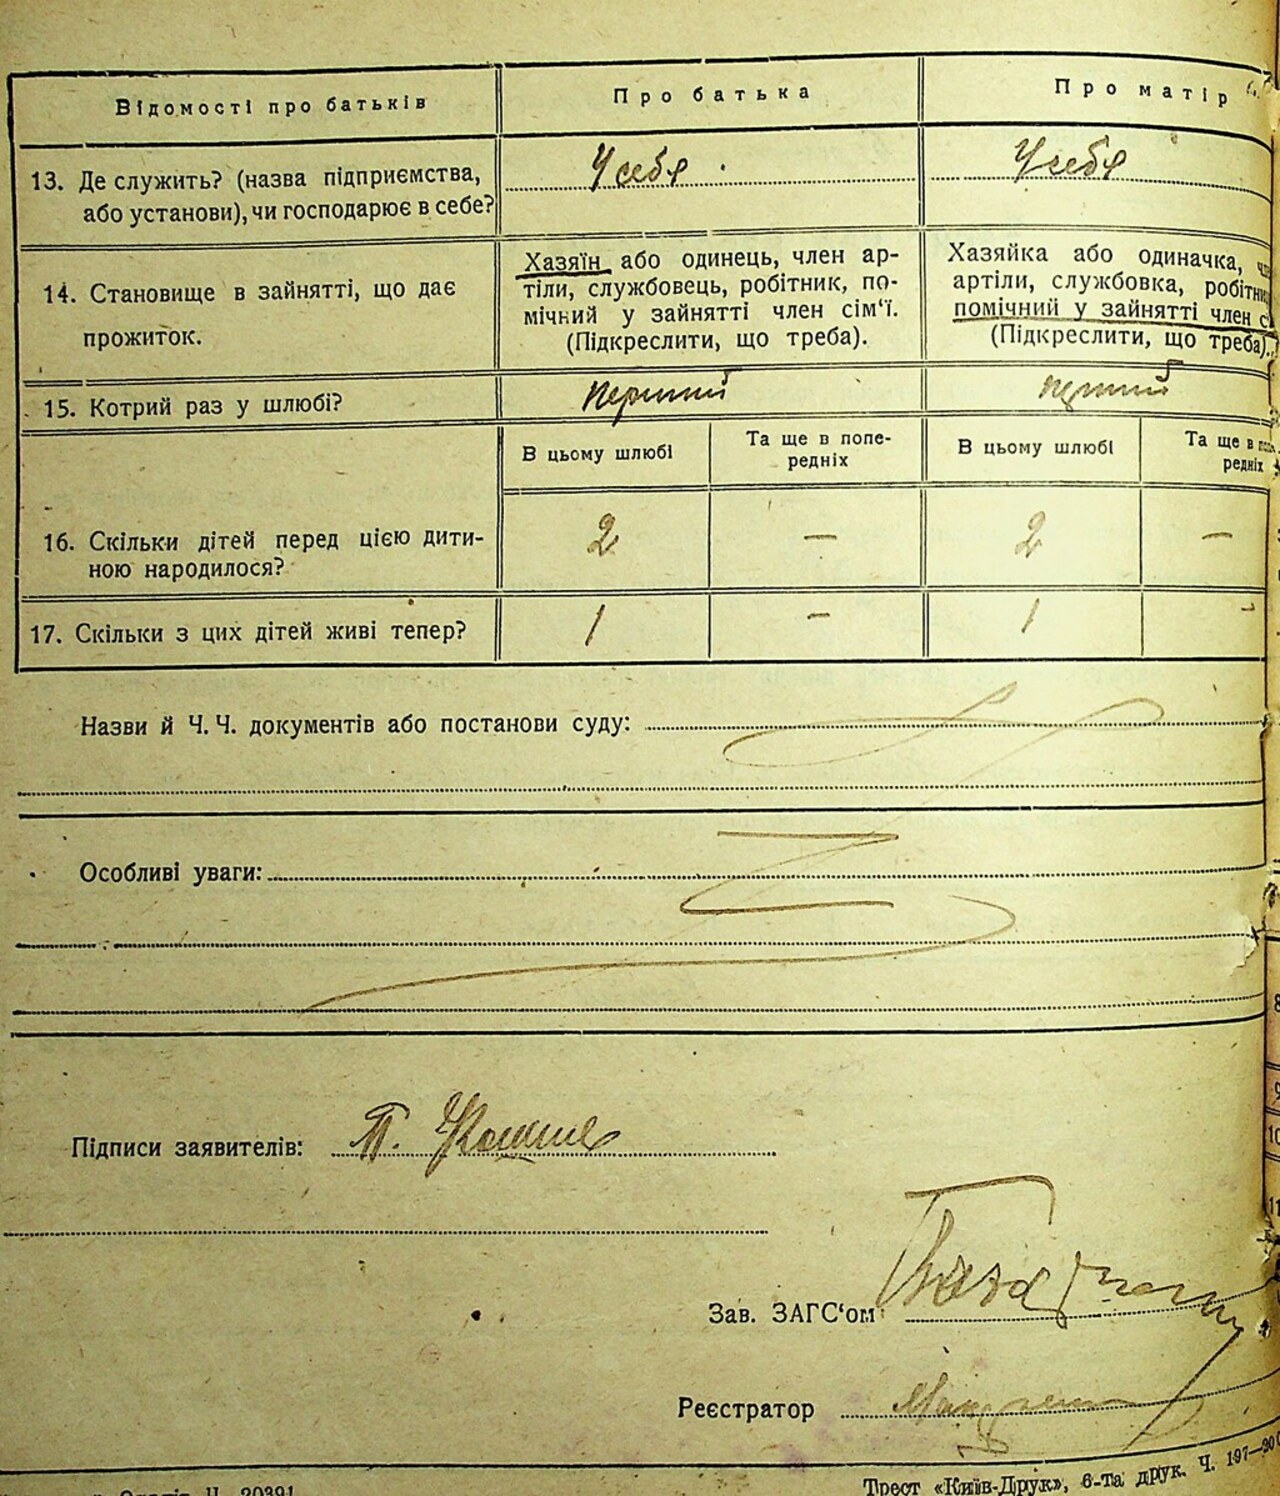 Відомості про батьків
Про батька
Про матір
13. Де служить? (назва підприємства,
або установи), чи господарює в себе?
У себя
У себя
14. Становище в зайнятті, що дає
прожиток.
Хазяїн або одинець, член ар-
тіли, службовець, робітник, по-
мічний у зайнятті член сім'ї.
(Підкреслити, що треба).
Хазяйка або одиначка,
артіли, службовка, робітни
помічний у зайнятті член с
(Підкреслити, що треба).
15. Котрий раз у шлюбі?
перший
перший
В цьому шлюбі
Та ще в попе-
редніх
В цьому шлюбі
Та ще в
редніх
16. Скільки дітей перед цією дити-
ною народилося?
2
—
2
—
17. Скільки з цих дітей живі тепер?
1
—
1
—
Назви й Ч. Ч. документів або постанови суду:
Особливі уваги:
Підписи заявителів: П.
Зав. ЗАГС'ом
Реєстратор
8
9
10
11
Трест «Київ-Друк», 6-та друк. Ч. 197—
20391